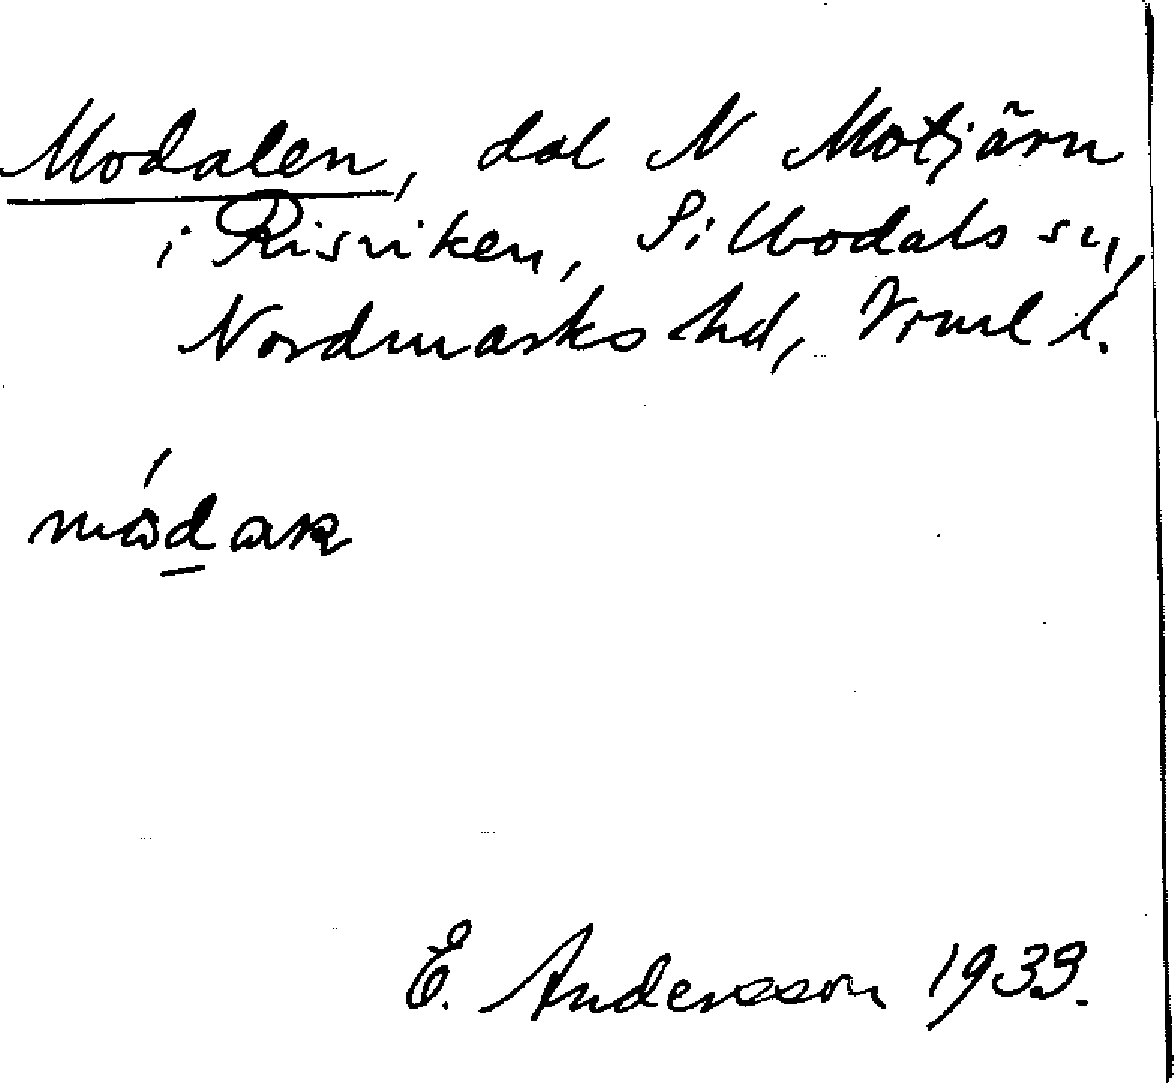 Modalen, dal N Motjärn
i Risviken, Silbodals sn,
Nordmarks hd, Vrml l.
E. Andersson 1933.